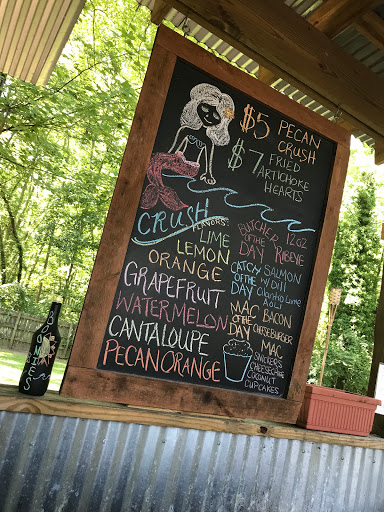 $5 PECAN
CRUSH
$7 FRIED
ARTICHOKE
HEARTS
CRUSH
FLAVORS:
LIME
LEMON
ORANGE
GRAPEFRUIT
WATERMELON
CANTALOUPE
PECAN ORANGE
BUTCHER 12oz
OF THE RIBEYE
DAY
CATCH SALMON
OF THE W/ DILL
DAY Cilantro Lime
AOLI
MAC BACON
OF THE CHEESEBURGER
DAY MAC
SNICKERS
CHEESECAKE
COCONUT
CUPCAKES